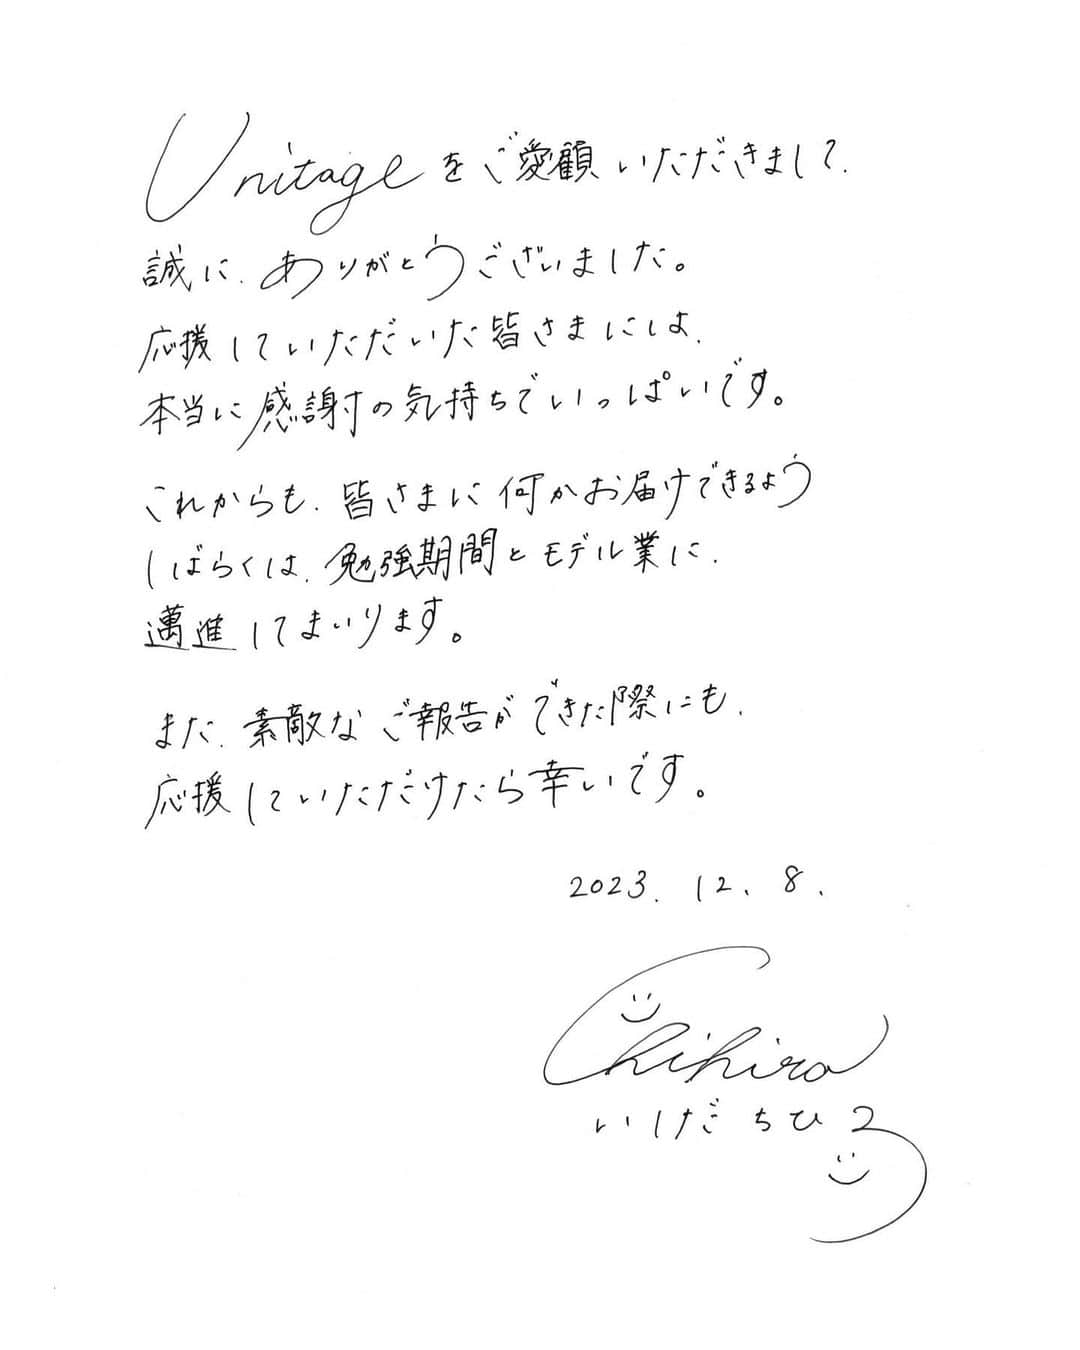 Unitageをご愛顧いただきまして、
誠に、ありがとうございました。
応援していただいた皆さまには、
本当に感謝の気持ちでいっぱいです。
これからも、皆さまに何かお届けできるよう
しばらくは、勉強期間とモデル業に、
邁進してまいります。
また、素敵なご報告ができた際にも、
応援していただけたら幸いです。
2023. 12. 8.
Chihiro
いしだちひろ